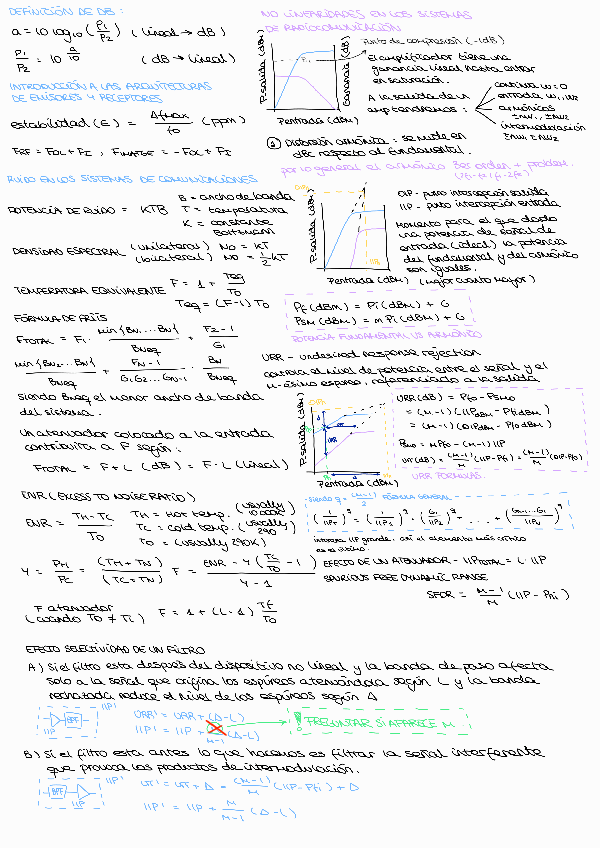 DEFINICIÓN DE DB:
a = 10 log10 (P1/P2) (lineal → dB)
P1/P2 = 10^(a/10) (dB → lineal)
INTRODUCCIÓN A LAS ARQUITECTURAS
DE EMISORES Y RECEPTORES
estabilidad (E) = Δfmax/fo (ppm)
FRF = FOL + FI , FIMAGEN = -FOL + FI
RUIDO EN LOS SISTEMAS DE COMUNICACIONES
B = ancho de banda
POTENCIA DE RUIDO = KTB T = temperatura
K = constante
Boltzmann
DENSIDAD ESPECTRAL (unilateral) No = KT
(bilateral) No = 1/2 KT
TEMPERATURA EQUIVALENTE F = 1 + Teq/To
Teq = (F-1) To
FÓRMULA DE FRIIS
FTOTAL = F1 · min{BN1...BN}/BNeq + F2-1/G1
min{BN2...BN}/BNeq + FN-1/G1.G2...GN-1 · BN/BNeq
siendo BNeq el menor ancho de banda
del sistema.
Un atenuador colocado a la entrada
contribuirá a F según:
FTOTAL = F + L (dB) = F · L (lineal)
ENR (EXCESS TO NOISE RATIO)
ENR = TH - TC/To TH = hot temp. (usually
TC = cold temp. (usually 290
To = (usually 290K)
Y = PH/PC = (TH + TN)/(TC + TN) F = ENR - Y (TC/To - 1)/Y - 1
F atenuador
(cuando To ≠ TL) F = 1 + (L-1) Tf/To
NO LINEARIDADES EN LOS SISTEMAS
DE RADIOCOMUNICACIÓN
Psalida (dBm)
Ganancia (dB)
Pentrada (dBm)
Punto de compresión (-1dB)
El amplificador tiene una
ganancia lineal hasta entrar
en saturación.
A la salida de un
amp tendremos:
continua w=0
entrada w1, w2
armónicos
±nw1, ±nw2
intermodulación
±nw1 ±mw2
① Distorsión armónica: se mide en
dBc respecto al fundamental.
por lo general el armónico 3er orden + problem.
Psalida (dBm)
Pentrada (dBm)
OIP - punto intercepción salida
IIP - punto intercepción entrada
Momento para el que dado
una potencia de señal de
entrada (ideal) la potencia
del fundamental y del armónico
son iguales.
(mejor cuanto mayor)
Pf (dBm) = Pi (dBm) + G
PSM (dBm) = M Pi (dBm) + G
POTENCIA FUNDAMENTAL VS ARMÓNICO
URR - undesired response rejection
contra el nivel de potencia entre el señal y el
M-ésimo espureo, referenciado a la salida
Psalida (dBm)
Pentrada (dBm)
URR (dB) = Pfo - PSMO
= (M-1)(IIPdBm - PfidBm)
= (M-1)(OIPdBm - PfodBm)
URR FORMULAS.
siendo q = (M-1)/2 FÓRMULA GENERAL
(1/IIPT)^q = (1/IIP1)^q + (G1/IIP2)^q + ... + (GN-1...G1/IIPN)^q
interesa IIP grande, así el elemento más crítico
es el último.
EFECTO DE UN ATENUADOR - IIPTOTAL = L · IIP
SPURIOUS FREE DYNAMIC RANGE
SFDR = M-1/M (IIP - PNi)
EFECTO SELECTIVIDAD DE UN FILTRO
A) Si el filtro esta después del dispositivo no lineal y la banda de paso afecta
solo a la señal que origina los espúreos atenuándola según L y la banda
rechazada reduce el nivel de los espúreos según Δ
IIP'
BPF
IIP
URR' = URR + (Δ-L)
IIP' = IIP + (Δ-L)
PREGUNTAR SI APARECE M
B) Si el filtro esta antes lo que hacemos es filtrar la señal interferente
que provoca los productos de intermodulación.
IIP'
BPF
IIP
UR' = UR + Δ = (M-1)/M (IIP - Pfi) + Δ
IIP' = IIP + M/M-1 (Δ-L)